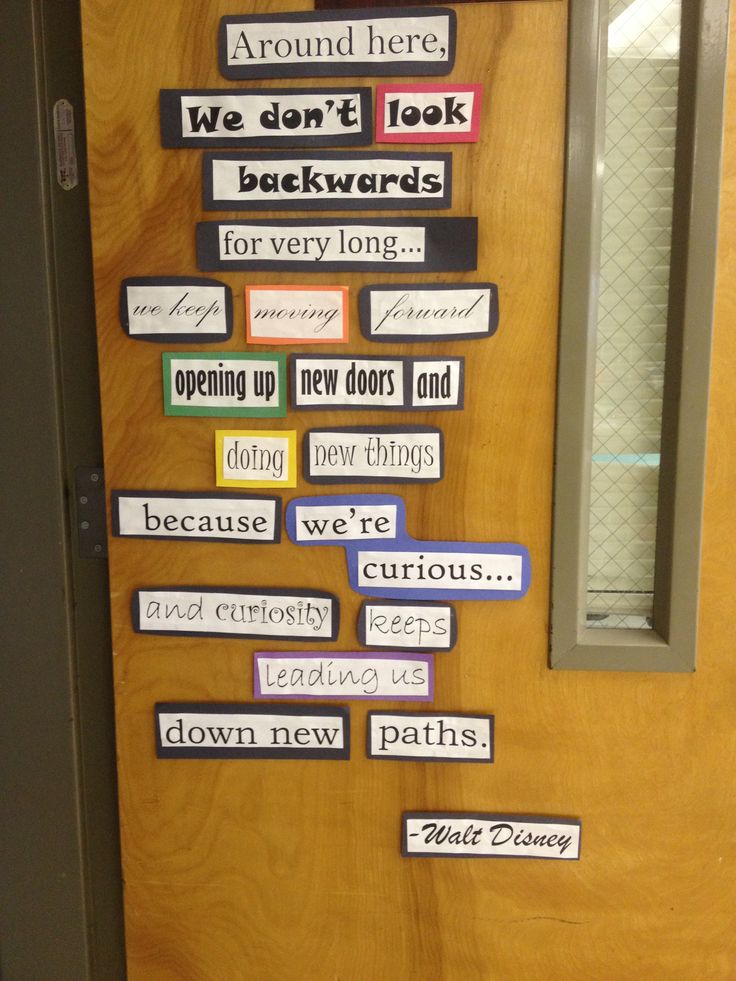 Around here,
We don't look
backwards
for very long...
we keep moving forward
opening up new doors and
doing new things
because we're
curious...
and curiosity keeps
leading us
down new paths.
-Walt Disney